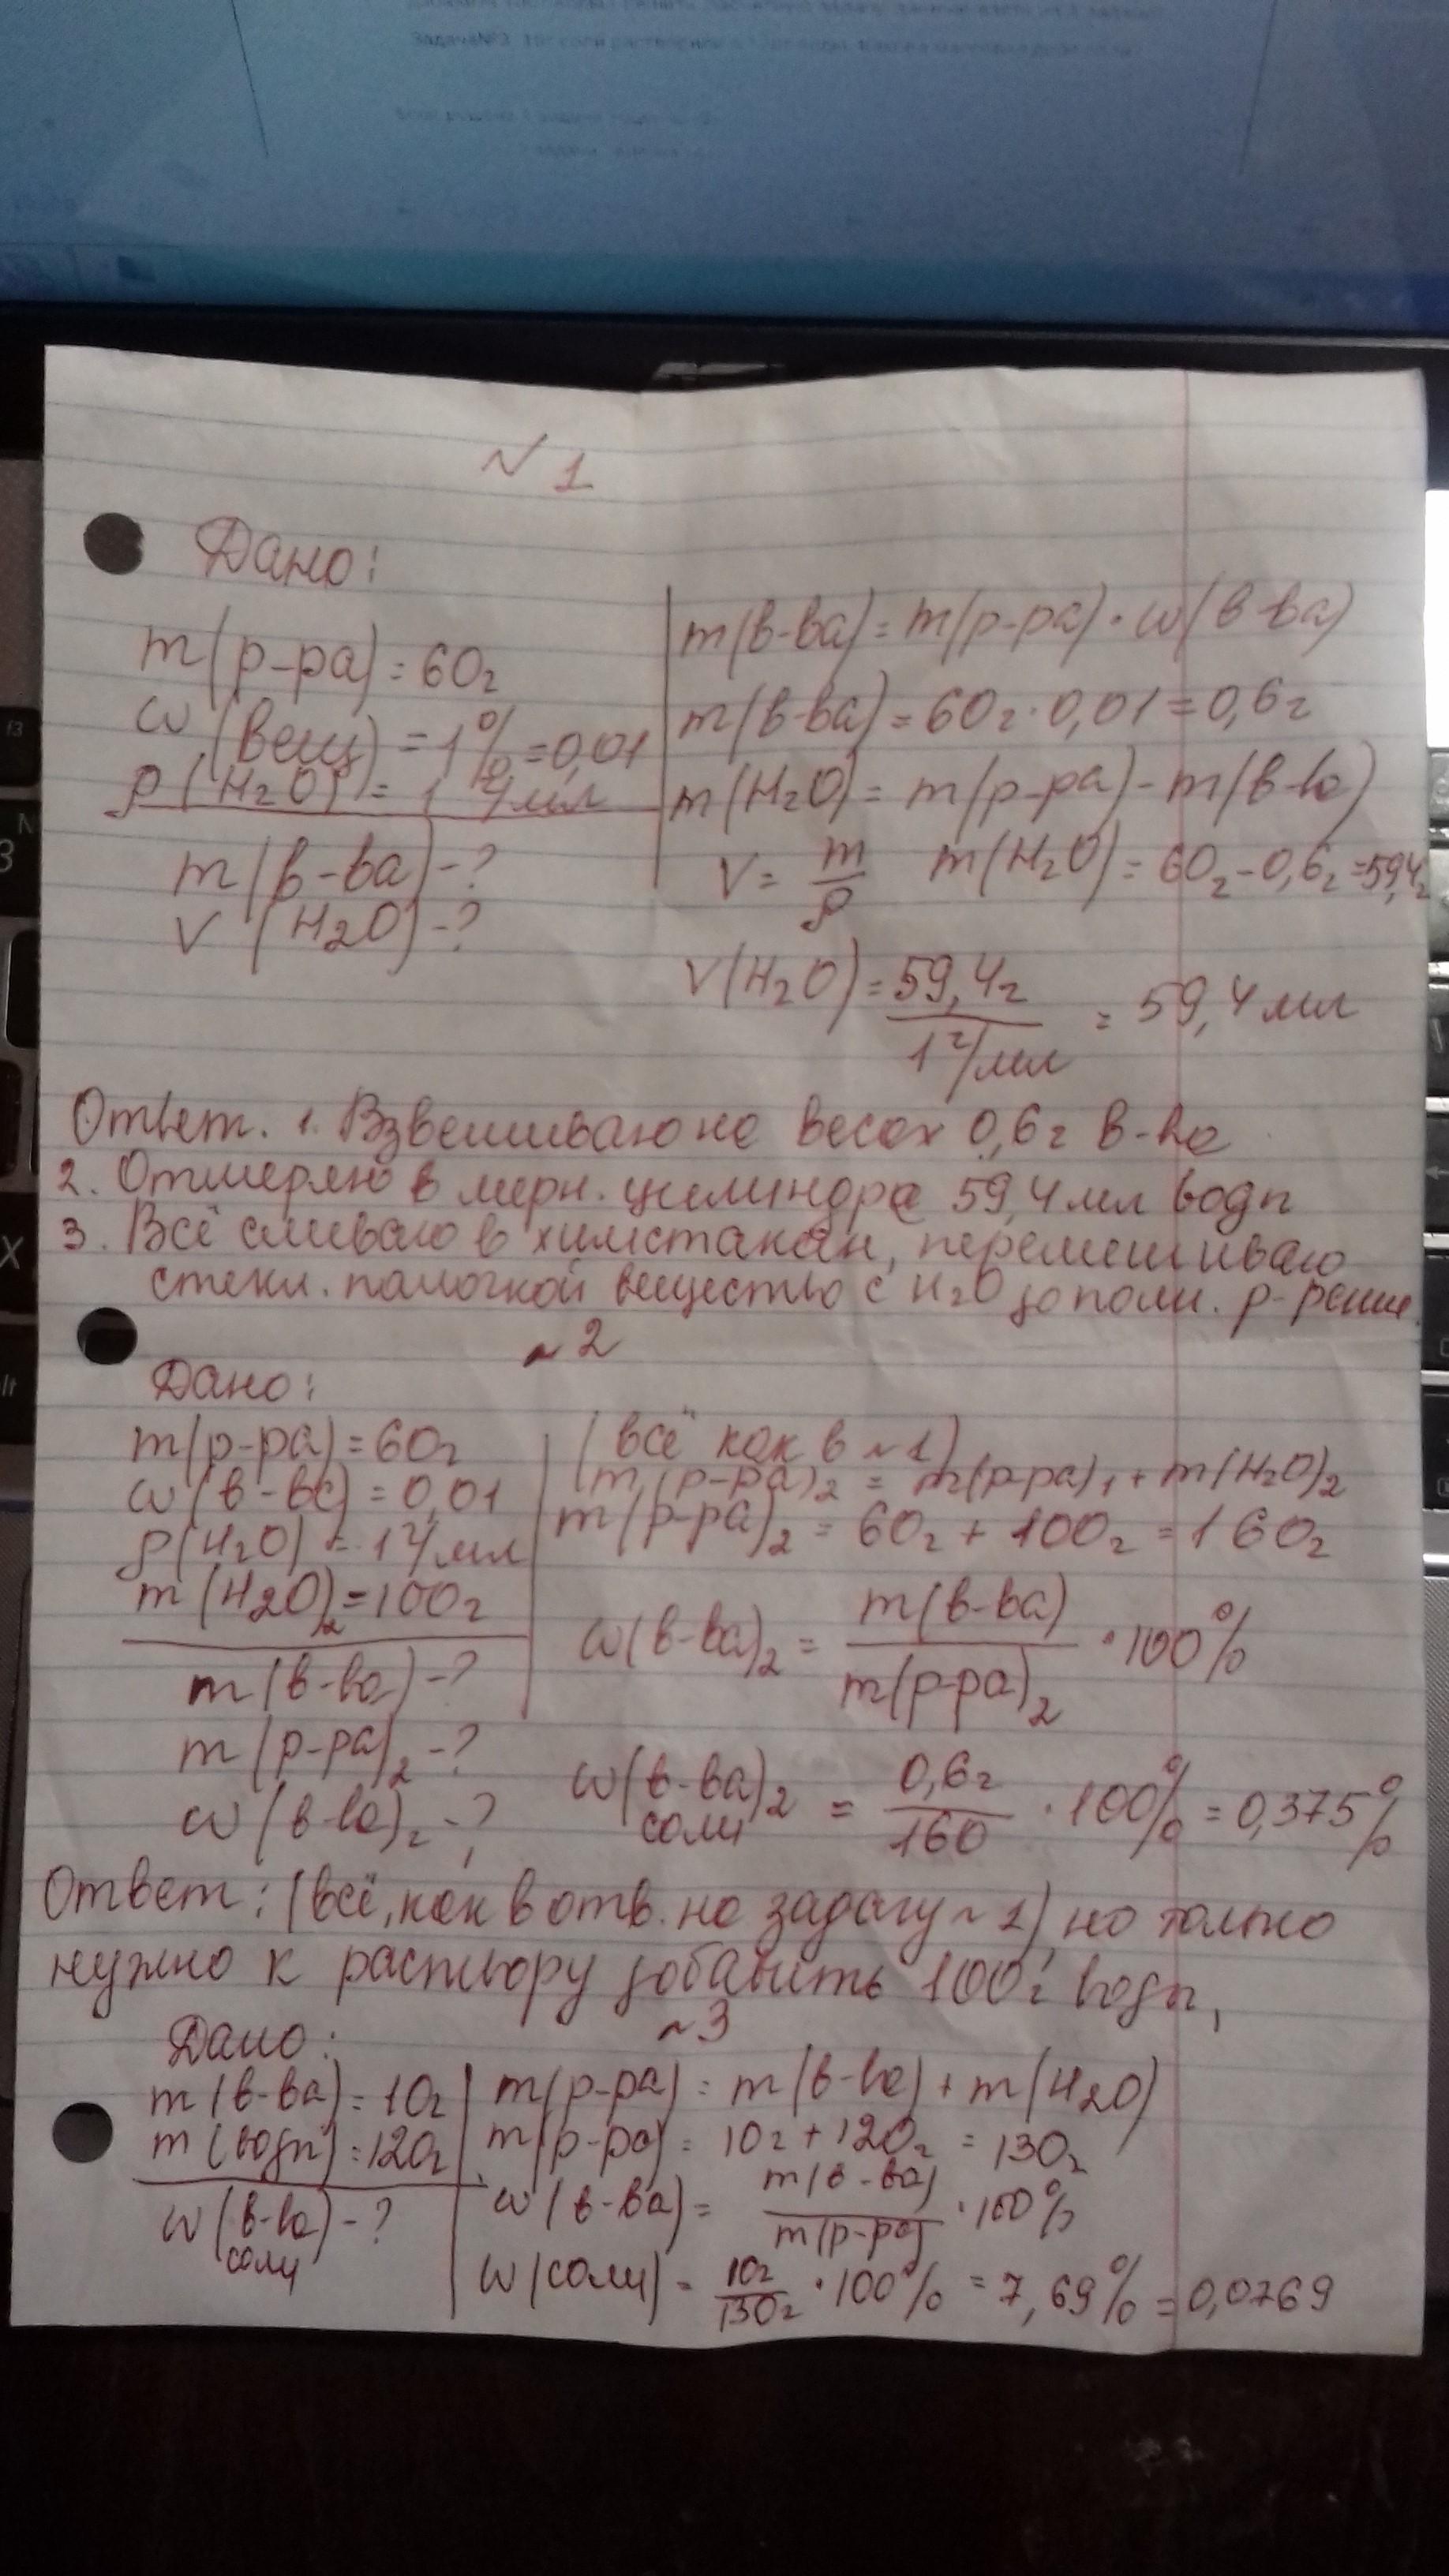 № 1
Дано:
m(р-ра) = 60г
ω(вещ) = 1% = 0,01
ρ(H2O) = 1 г/мл
m(в-ва) - ?
V (H2O) - ?
m(в-ва) = m(р-ра) · ω(в-ва)
m(в-ва) = 60г · 0,01 = 0,6г
m(H2O) = m(р-ра) - m(в-ва)
V = m/ρ m(H2O) = 60г - 0,6г = 59,4г
V(H2O) = 59,4г / 1 г/мл = 59,4 мл
Ответ. 1. Взвешиваю на весах 0,6г в-ва
2. Отмеряю в мерн. цилиндре 59,4 мл воды
3. Всё сливаю в химстакан, перемешиваю
стекл. палочкой вещество с H2O до полн. р-рения.
№ 2
Дано:
m(р-ра) = 60г
ω(в-ва) = 0,01
ρ(H2O) = 1 г/мл
m(H2O)2 = 100г
m(в-ва) - ?
m(р-ра)2 - ?
ω(в-ва)2 - ?
(всё как в №1)
m(р-ра)2 = m(р-ра)1 + m(H2O)2
m(р-ра)2 = 60г + 100г = 160г
ω(в-ва)2 = m(в-ва) / m(р-ра)2 · 100%
ω(в-ва)2 = 0,6г / 160 · 100% = 0,375%
соли
Ответ: (всё, как в отв. на задачу №1), но только
нужно к раствору добавить 100г воды,
№3
Дано:
m(в-ва) = 10г
m(воды) = 120г
ω(в-ва) - ?
соли
m(р-ра) = m(в-ва) + m(H2O)
m(р-ра) = 10г + 120г = 130г
ω(в-ва) = m(в-ва) / m(р-ра) · 100%
ω(соли) = 10г / 130г · 100% = 7,69% = 0,0769